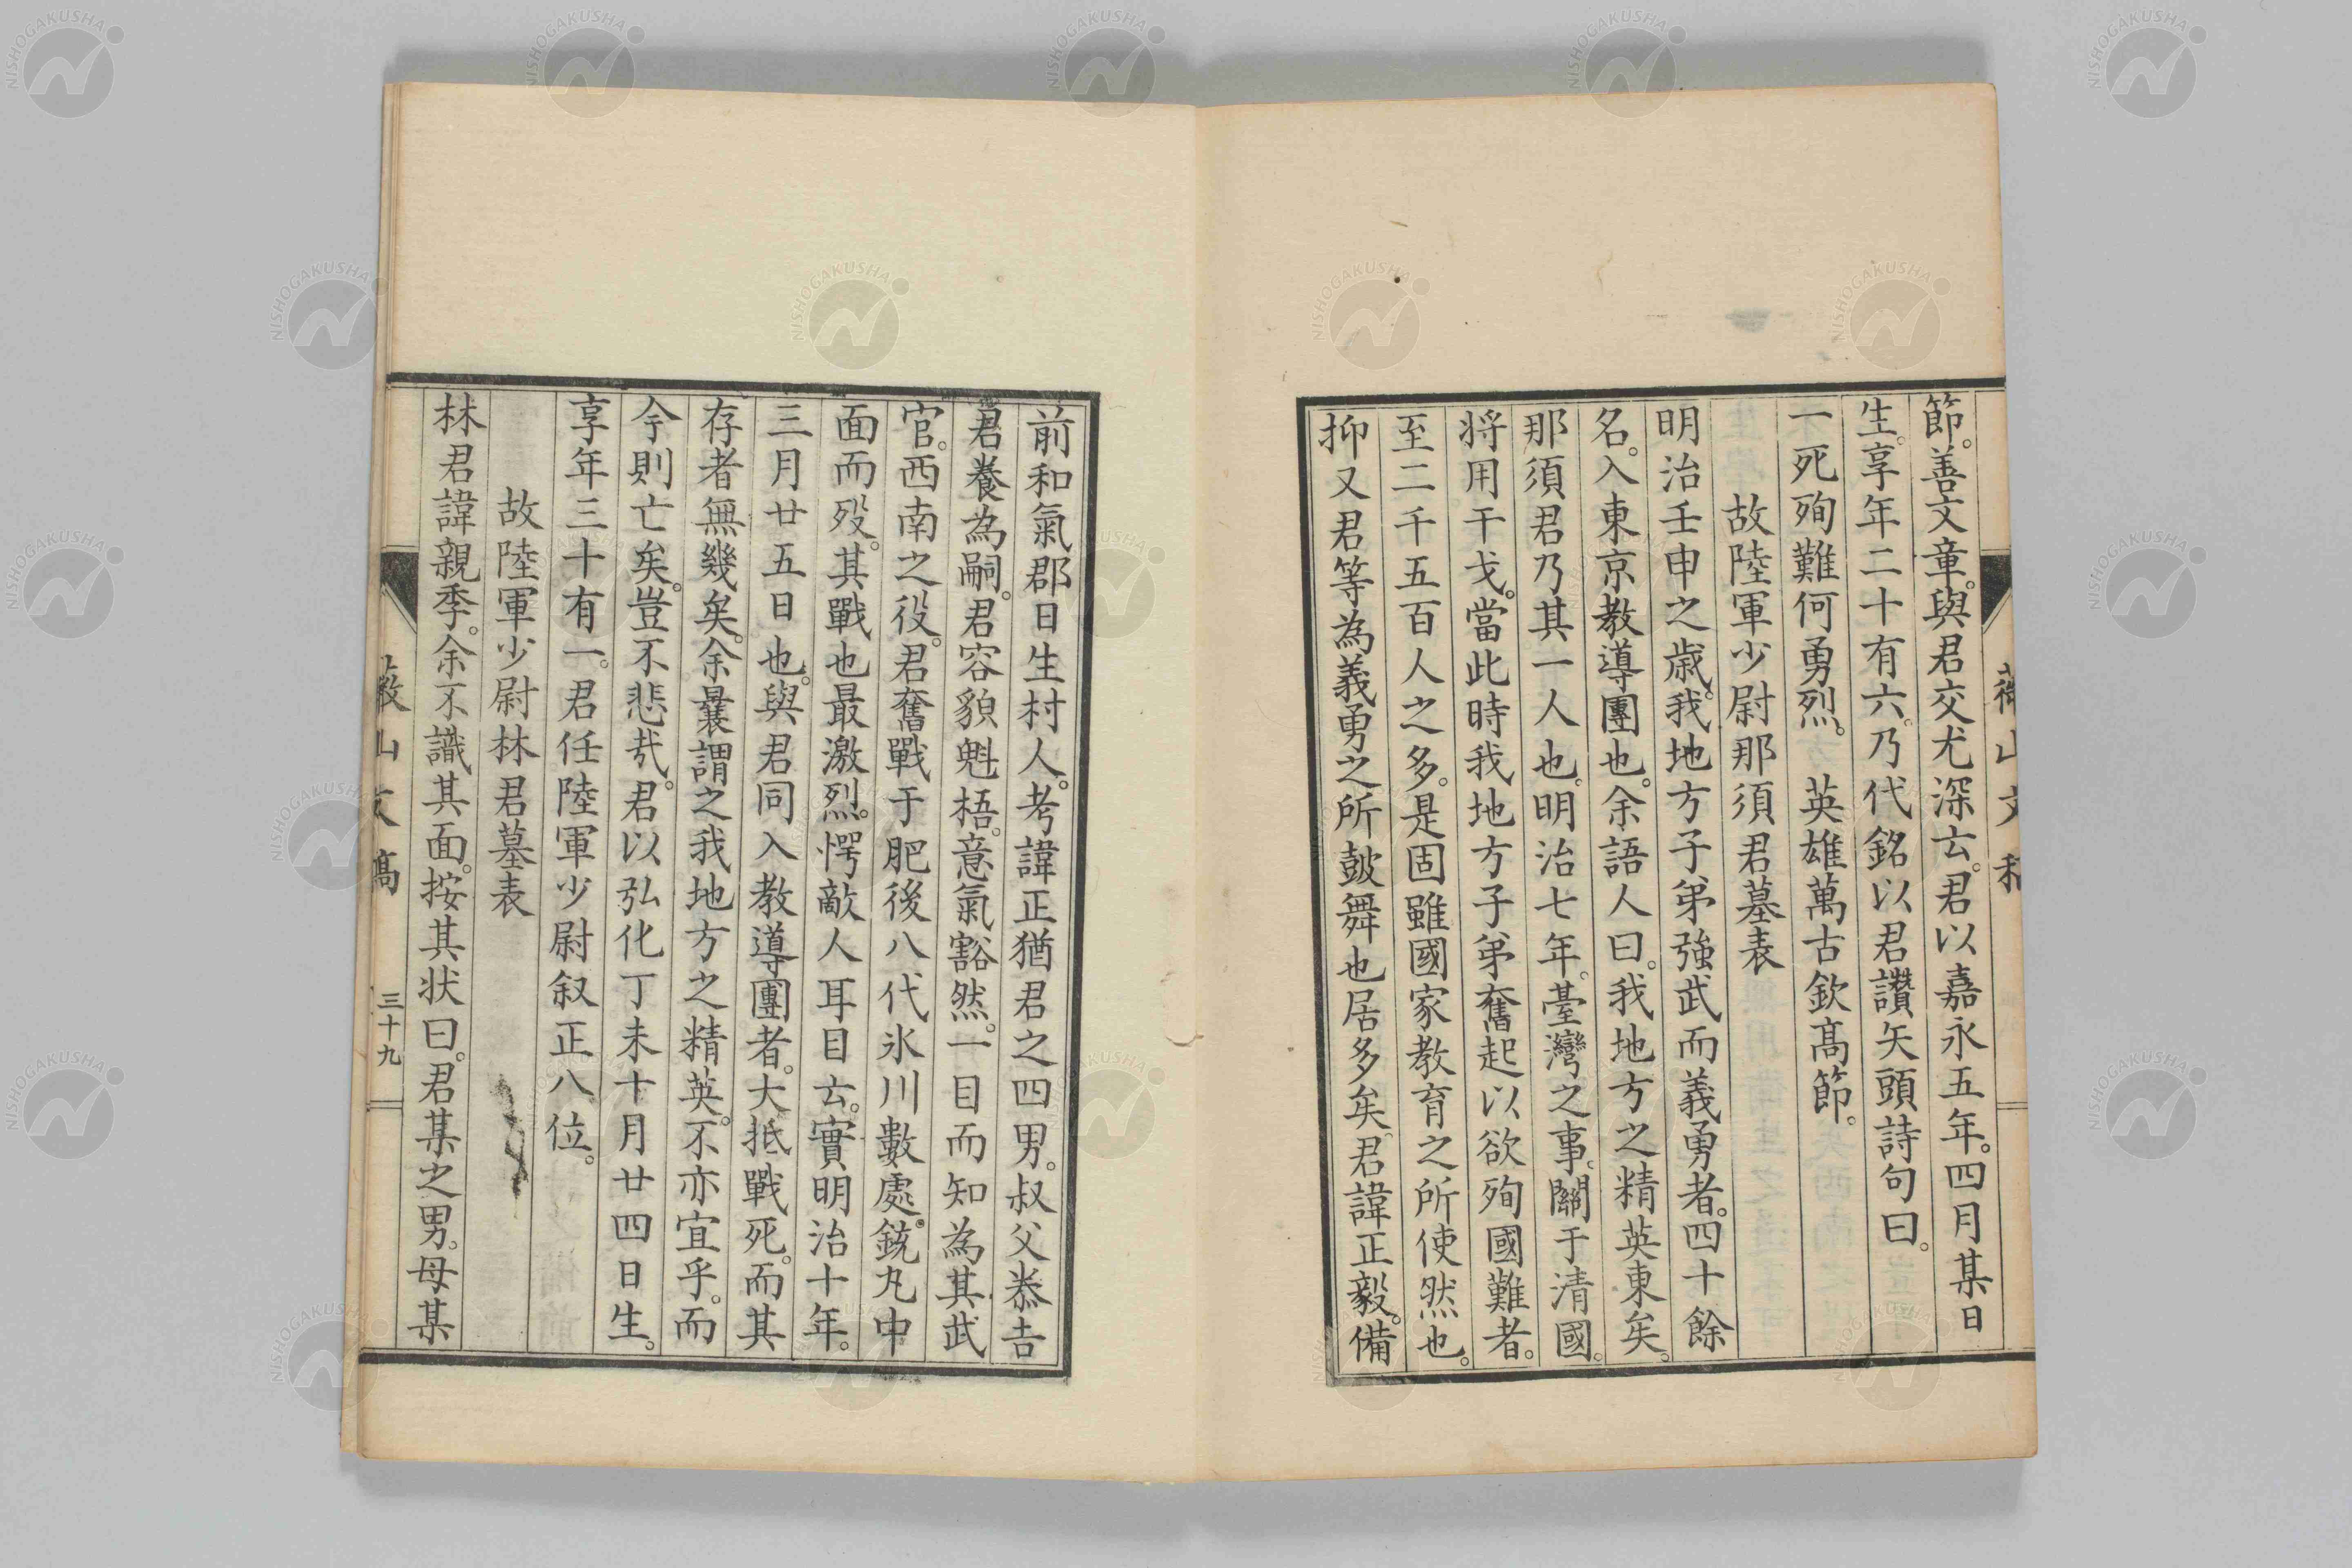 節。善文章。與君交尤深云。君以嘉永五年。四月某日
生。享年二十有六。乃代銘以君讚矢頭詩句曰。
一死殉難何勇烈。　英雄萬古欽髙節。
故陸軍少尉那須君墓表
明治壬申之歳。我地方子弟強武而義勇者。四十餘
名。入東京教導團也。余語人曰。我地方之精英東矣。
那須君乃其一人也。明治七年。臺灣之事。關于清國。
将用干戈。當此時我地方子弟奮起以欲殉國難者。
至二千五百人之多。是固雖國家教育之所使然也。
抑又君等為義勇之所皷舞也居多矣。君諱正毅。備
前和氣郡日生村人。考諱正猶君之四男。叔父恭吉
君養為嗣。君容貌魁梧。意氣豁然。一目而知為其武
官。西南之役。君奮戰于肥後八代氷川數處。銃丸中
面而歿。其戰也最激烈。愕敵人耳目云。實明治十年。
三月廿五日也。與君同入教導團者。大抵戰死。而其
存者無幾矣。余曩謂之我地方之精英。不亦宜乎。而
今則亡矣。豈不悲哉。君以弘化丁未十月廿四日生。
享年三十有一。君任陸軍少尉叙正八位。
故陸軍少尉林君墓表
林君諱親季。余不識其面。按其状曰。君某之男。母某
薇山文稿
三十九
NISHOGAKUSHA